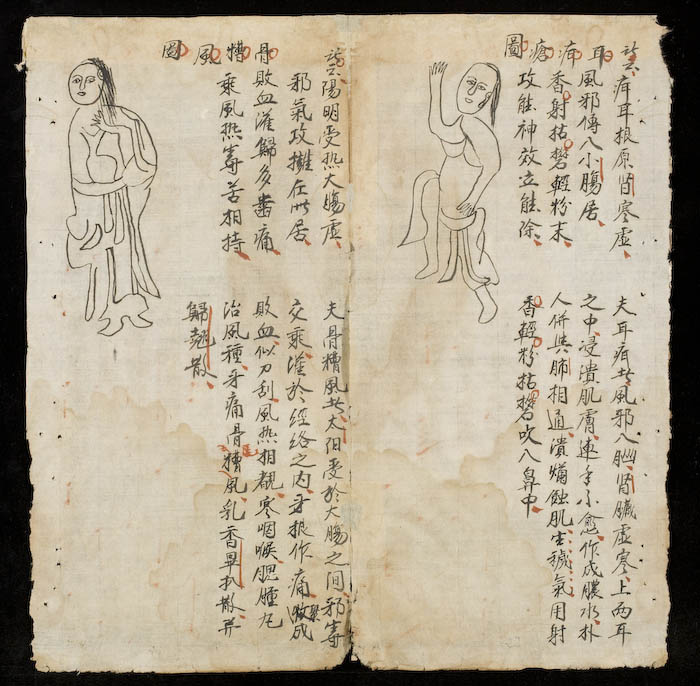 訣云疳耳根原腎寒虛
耳風邪傳入小腸居
疳香射枯礬輕粉末
瘡攻能神效立能除
圖
夫耳疳者風邪入腦腎臟虛寒上兩耳
之中浸潰肌膚連年不愈作成膿水朴
人併與肺相通潰爛蝕肌生穢氣用射
香輕粉枯礬吹入鼻中
訣云陽明受热大腸虛
邪氣攻擁在此居
骨敗血灌歸多齒痛
槽乘風热毒苦相持
風
圖
夫骨槽風者太阳受於大腸之间邪毒
交乘灌於經絡之内牙根作痛聚成
敗血似刀刮風热相襯寒咽喉腮腫
治風種牙痛骨槽風乳香散并
歸翹散